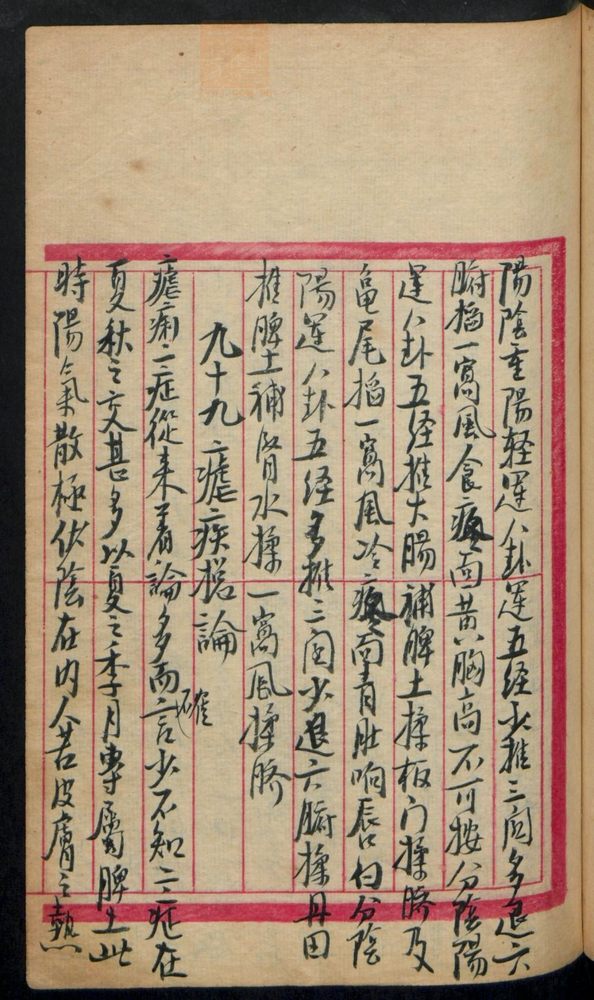 陽陰重陽轻運八卦運五经少推三関多退六
腑掐一窩風食瘧面黄胸高不可按分陰陽
運八卦五经推大腸補脾土揉板门揉臍及
龟尾掐一窩風冷瘧面青肚响唇白分陰
陽運八卦五经多推三関少退六腑揉丹田
推脾土補腎水揉一窩風揉臍
九十九瘧疾搃論
瘧痢二症從来着論多而確言少不知二症在
夏秋之交甚多以夏之季月專屬脾土此
時陽氣散極伏陰在内人若皮膚之熱